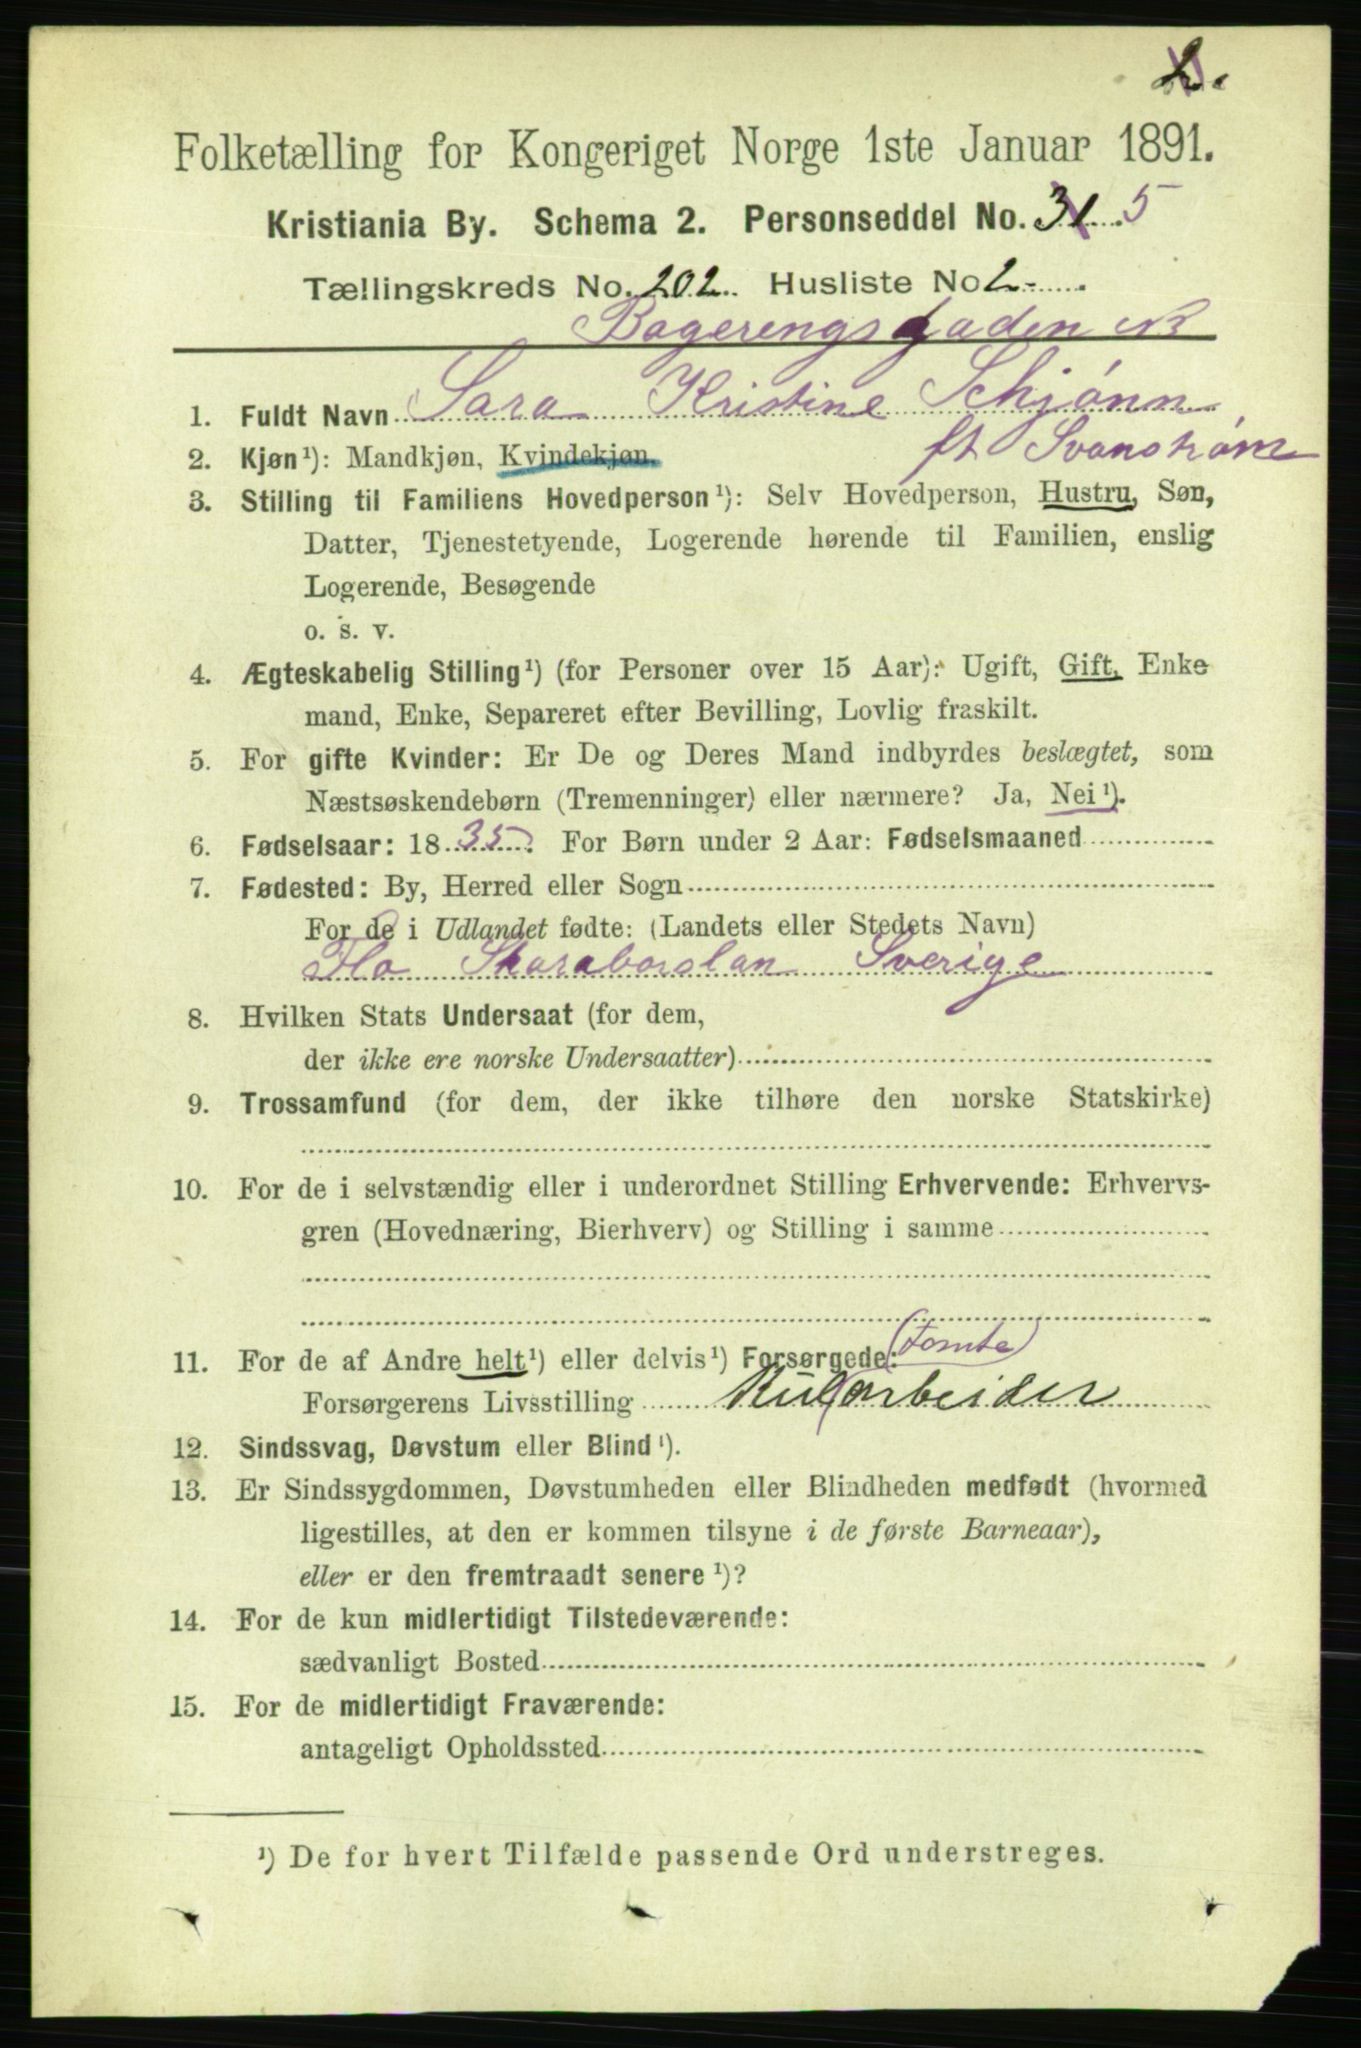 2.
Folketælling for Kongeriget Norge 1ste Januar 1891.
Kristiania By. Schema 2. Personseddel No. 31 5
Tællingskreds No. 202. Husliste No 2
Bagerengsgaden
1. Fuldt Navn Sara Kristine Schjönn
ft Svanström
2. Kjøn¹): Mandkjøn, Kvindekjøn.
3. Stilling til Familiens Hovedperson¹): Selv Hovedperson, Hustru, Søn,
Datter, Tjenestetyende, Logerende hørende til Familien, enslig
Logerende, Besøgende
o. s. v.
4. Ægteskabelig Stilling¹) (for Personer over 15 Aar): Ugift, Gift, Enke
mand, Enke, Separeret efter Bevilling, Lovlig fraskilt.
5. For gifte Kvinder: Er De og Deres Mand indbyrdes beslægtet, som
Næstsøskendebørn (Tremenninger) eller nærmere? Ja, Nei¹).
6. Fødselsaar: 1835. For Børn under 2 Aar: Fødselsmaaned
7. Fødested: By, Herred eller Sogn
For de i Udlandet fødte: (Landets eller Stedets Navn)
Flo Skaraborslan Sverige
8. Hvilken Stats Undersaat (for dem,
der ikke ere norske Undersaatter)
9. Trossamfund (for dem, der ikke tilhøre den norske Statskirke)
10. For de i selvstændig eller i underordnet Stilling Erhvervende: Erhvervs-
gren (Hovednæring, Bierhverv) og Stilling i samme
11. For de af Andre helt¹) eller delvis¹) Forsørgede:
(tomte)
Forsørgerens Livsstilling Kularbeider
12. Sindssvag, Døvstum eller Blind¹).
13. Er Sindssygdommen, Døvstumheden eller Blindheden medfødt (hvormed
ligestilles, at den er kommen tilsyne i de første Barneaar),
eller er den fremtraadt senere¹)?
14. For de kun midlertidigt Tilstedeværende:
sædvanligt Bosted
15. For de midlertidigt Fraværende:
antageligt Opholdssted
¹) De for hvert Tilfælde passende Ord understreges.